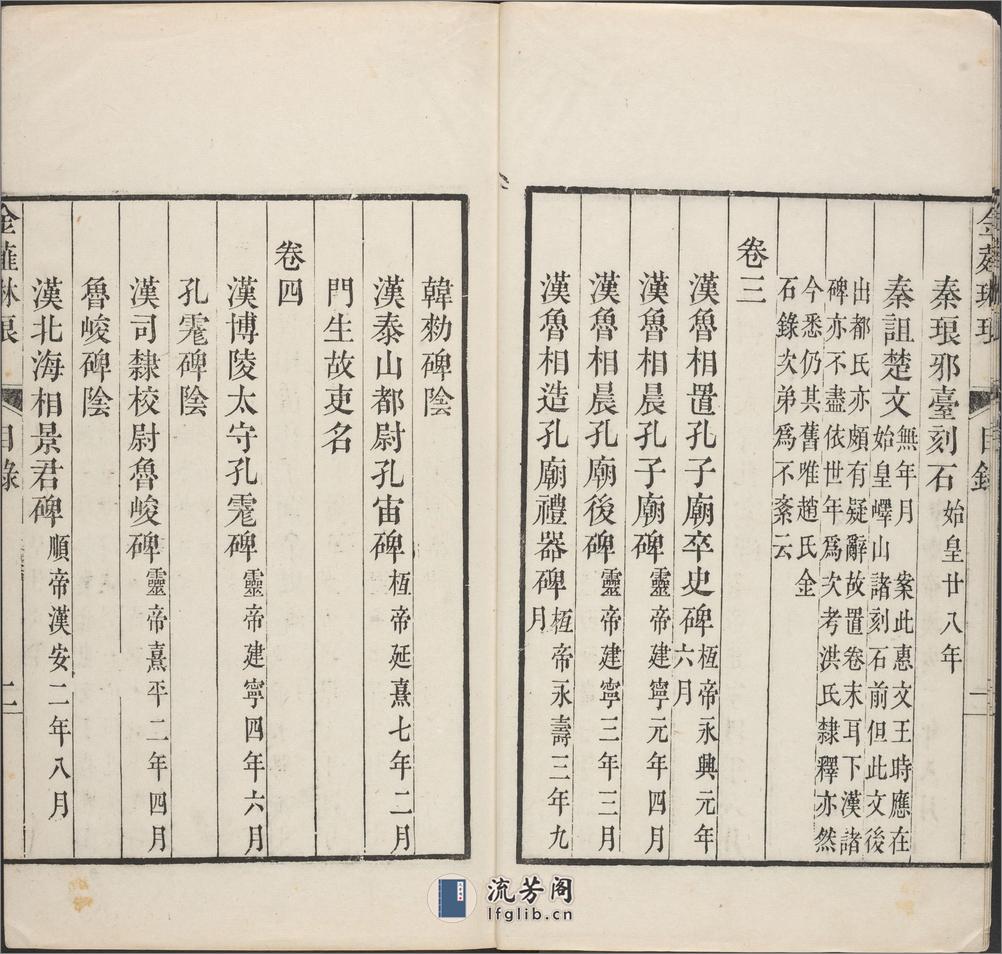 金薤琳琅 目錄 一
秦琅邪臺刻石 始皇廿八年
秦詛楚文 無年月 案此惠文王時應在
始皇嶧山諸刻石前但此文後
出都氏亦頗有疑辭故置卷末耳下漢諸
碑亦不盡依世年爲次考洪氏隸釋亦然
今悉仍其舊唯趙氏金
石錄次弟爲不紊云
卷三
漢魯相置孔子廟卒史碑 恆帝永興元年
六月
漢魯相晨孔子廟碑 靈帝建寧元年四月
漢魯相晨孔廟後碑 靈帝建寧三年三月
漢魯相造孔廟禮器碑 恆帝永壽三年九
月
韓勑碑陰
漢泰山都尉孔宙碑 恆帝延熹七年二月
門生故吏名
卷四
漢博陵太守孔霮碑 靈帝建寧四年六月
孔霮碑陰
漢司隸校尉魯峻碑 靈帝熹平二年四月
魯峻碑陰
漢北海相景君碑 順帝漢安二年八月
金薤琳琅 目錄 二
流芳阁
lfglib.cn